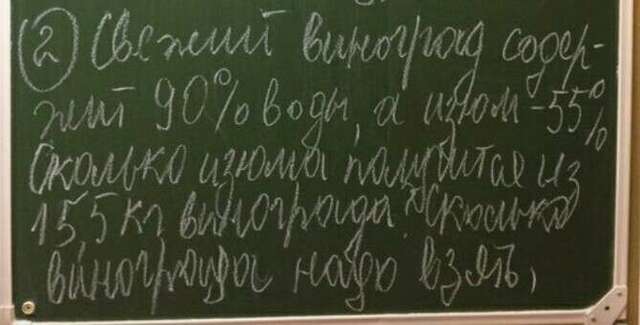 ② Свежий виноград содер-
жит 90% воды, а изюм - 55%
Сколько изюма получится из
15,5 кг винограда? Сколько
винограда надо взять,